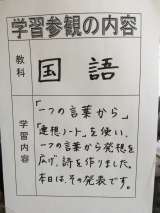 学習参観の内容
教科
国語
学習内容
「一つの言葉から」
「連想ノート」を使い、
一つの言葉から発想を
広げ、詩を作りました。
本日は、その発表です。